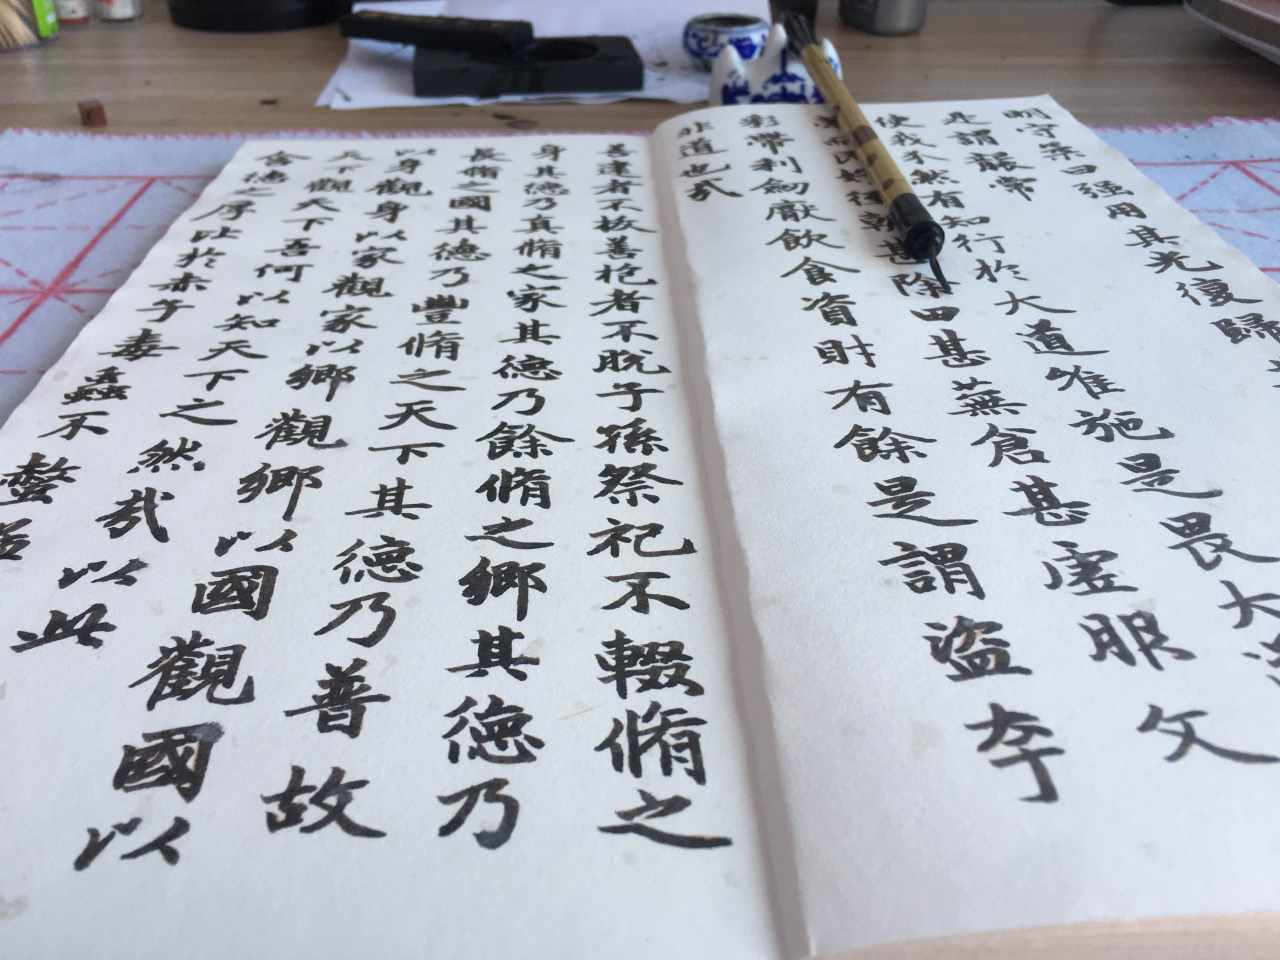 明守柔曰强用其光復歸
是謂襲常
使我介然有知行於大道唯施是畏大
而民好徑朝甚除田甚蕪倉甚虛服文
彩帶利劒厭飲食資財有餘是謂盜夸
非道也哉
善建者不拔善抱者不脫子孫祭祀不輟脩之
身其德乃真脩之家其德乃餘脩之鄉其德乃
長脩之國其德乃豐脩之天下其德乃普故
以身觀身以家觀家以鄉觀鄉以國觀國以
天下觀天下吾何以知天下之然哉以此
含德之厚比於赤子毒蟲不螫